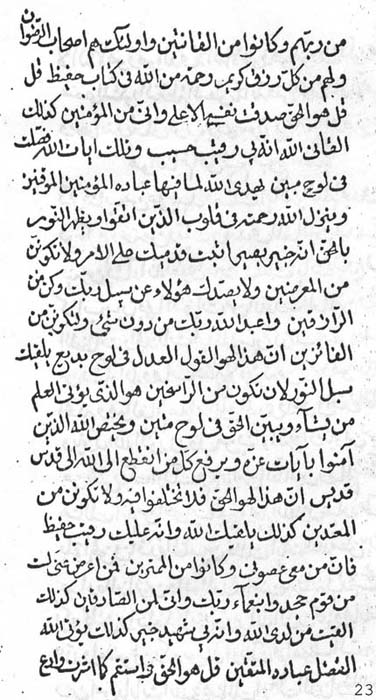 من ربهم وكانوا من القانتين واولئك هم اصحاب الرضوان
ولهم من كل رزق كريم ورحمة من الله فى كتاب حفيظ قل
قل هو الحق صدقت نفسى الاعلى وانى من المؤمنين كذلك
القانى الله انه بى رقيب حسيب وتلك ايات الله
فى لوح مبين ليهدى الله لما فيها عباده المؤمنين الموقنين
وينزل الله رحمته فى قلوب الذين اتقوا ويظهر النور
بالحق انه خبير بصير اثبت قدميك على الامر ولا تكونن
من المعرضين ولا يصدك هؤلاء عن سبيل ربك وكن من
واعبد الله ربك من دون شىء ولتكونن من
الفائزين ان هذا لهو القول العدل فى لوح بديع يلقيك
سبل النور لان تكون من الراسخين هو الذى يؤتى العلم
من يشآء ويبين الحق فى لوح مبين ويختص الله الذين
آمنوا بآيات عزه ويرفع كل من انقطع الى الله الى قدس
قديس ان هذا لهو الحق فلا تختلفوا فيه ولا تكونن من
المعتدين كذلك يلقيك الله وانه عليك رقيب حفيظ
فان من معى عصونى وكانوا من الممترين فمن اعرض عنى لت
من قوم جحدوا نعمآء ربك وانى لمن الصادقين كذلك
القيت من لدى الله وانه بى شهيد خبير كذلك يؤتى الله
الفضل عباده المتقين قل هو الحق فاستقم كما امرت وادع
23